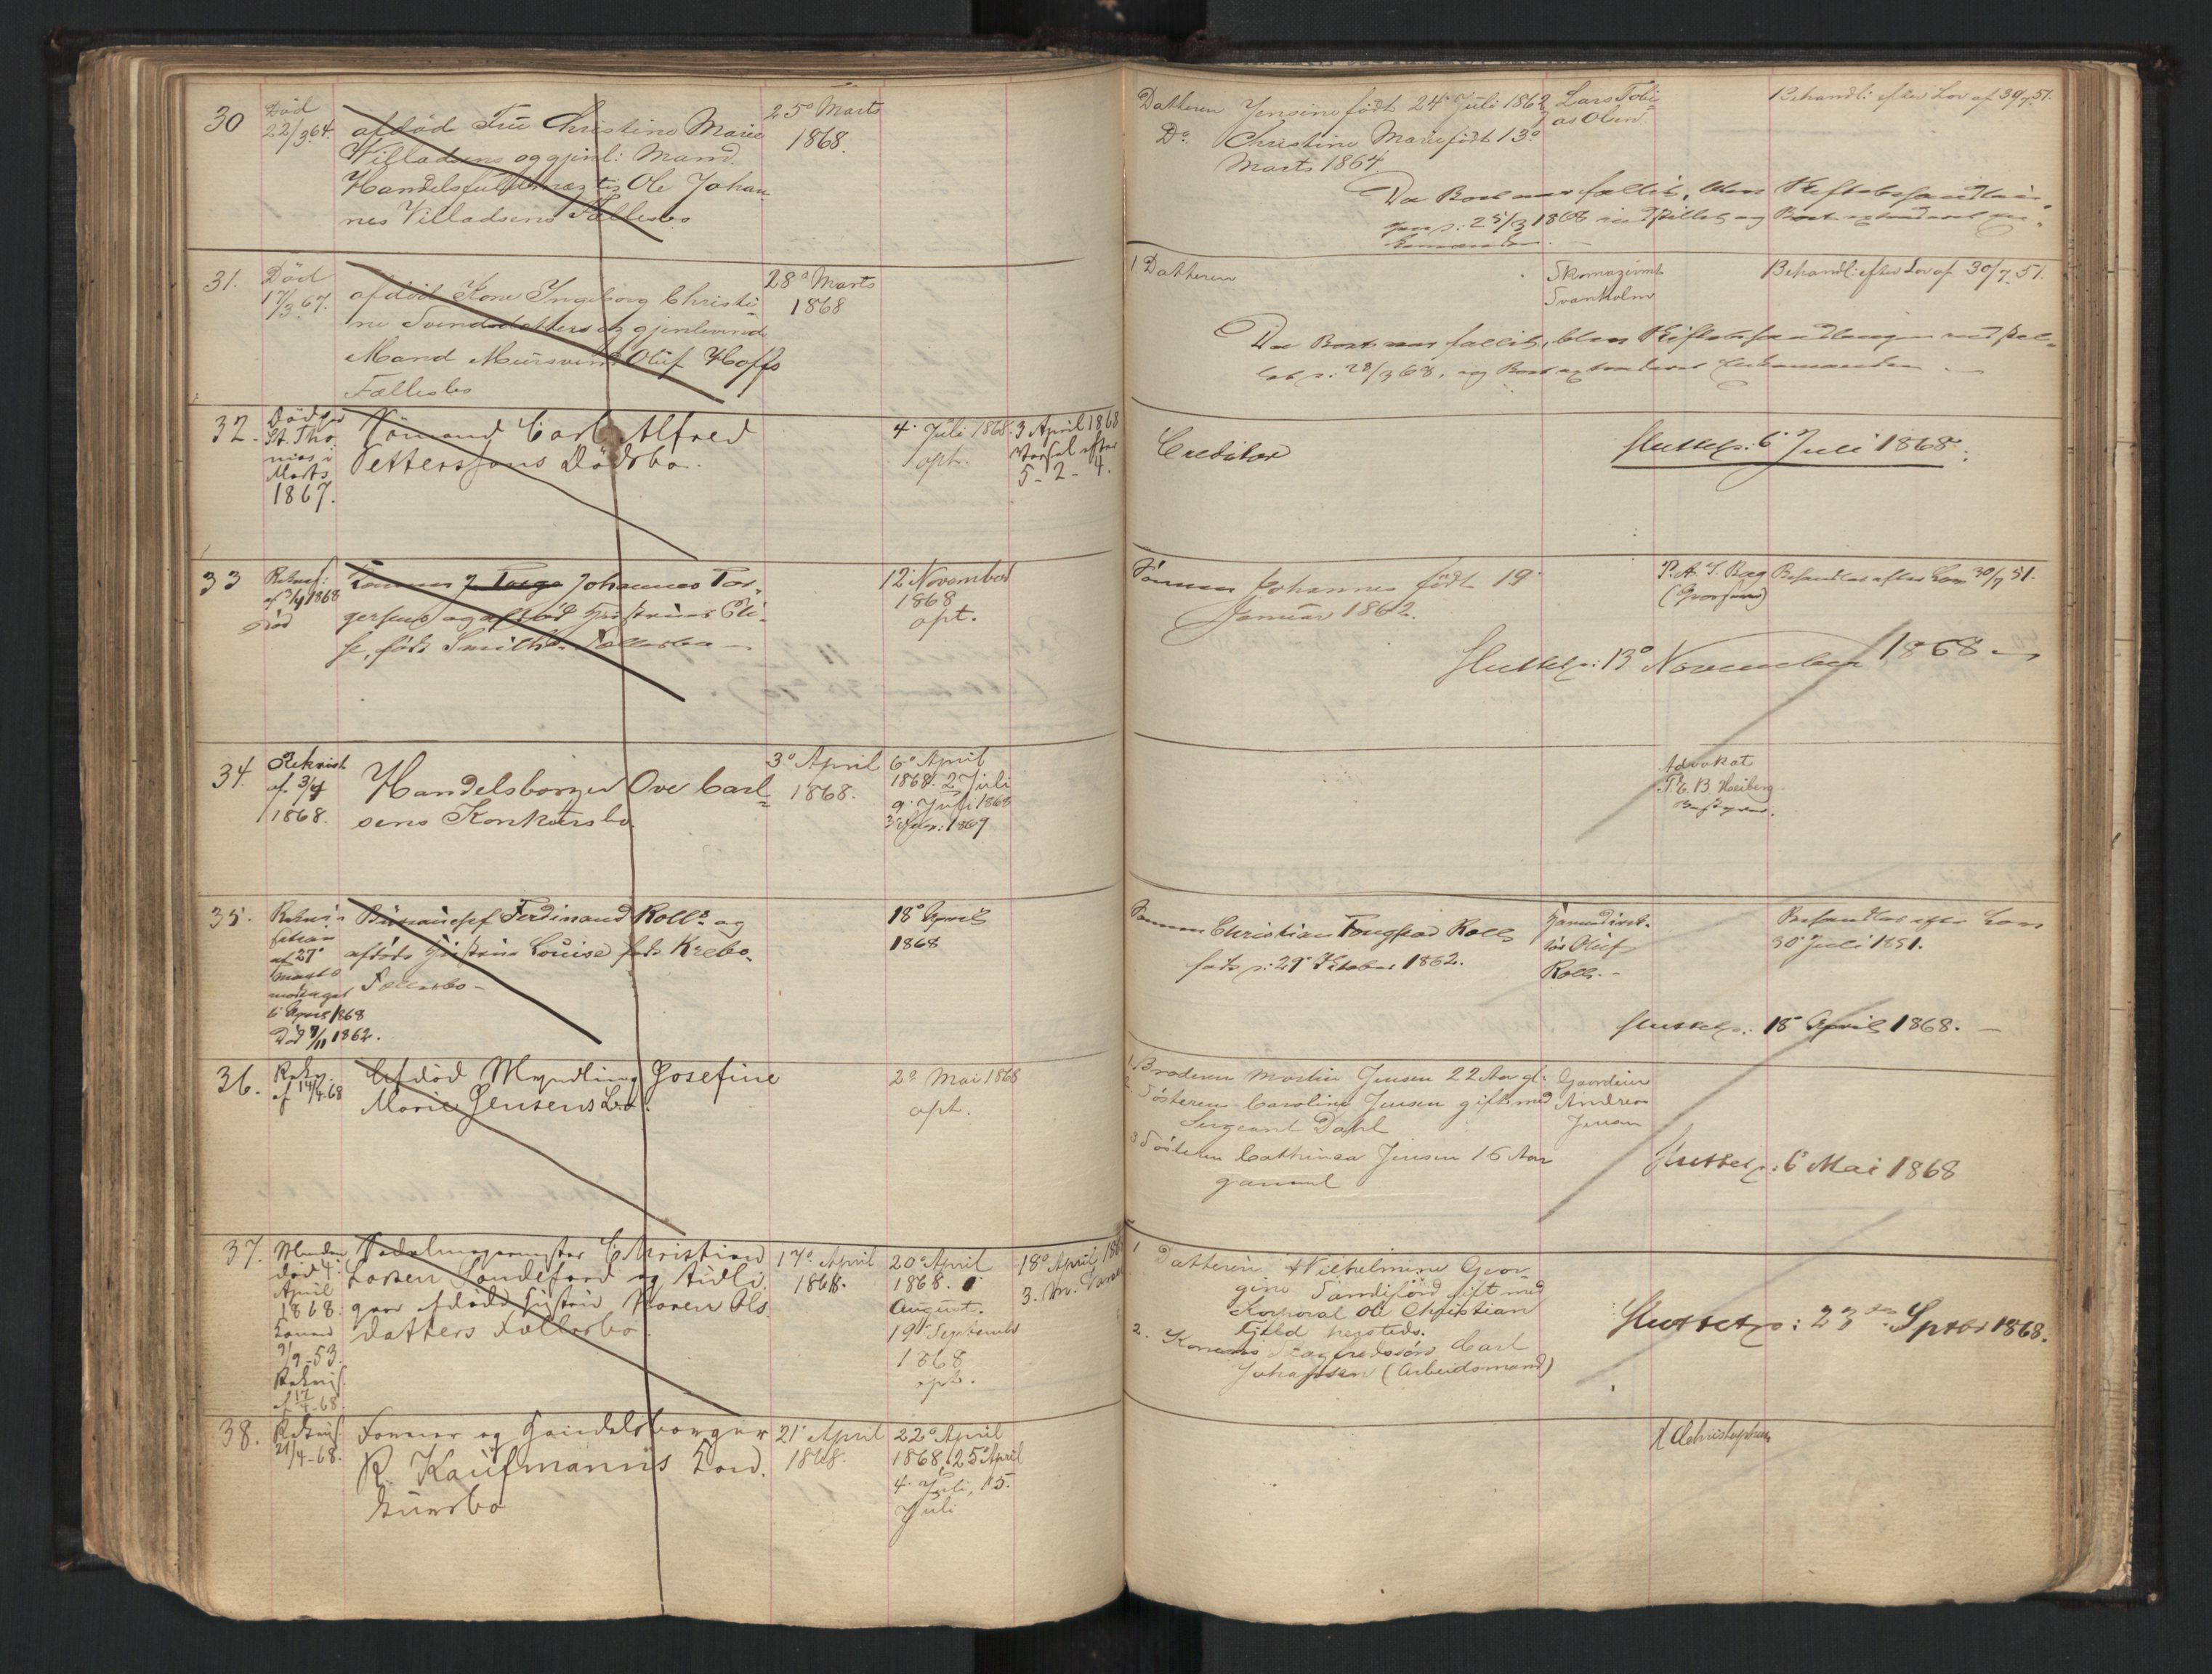 30
Död
22/3.64.
afdöd Fru Christine Marie
Villadsens og gjenl: Mand
Handelsfuldmægtig Ole Johan
nes Villadsens Fællesbo
25° Marts
1868.
Datteren Jensine født 24° Juli 1862
D° Christine Marie født 13°
Marts 1864
Lars Tobi=
as Olsen
Behandl: efter Lov af 30/7.51.
Da Boet var fallit, blev Skiftebehandlin=
gen p: 25/3 1868 indstillet og Boet
31.
Död
17/3.67.
afdöd Kone Ingeborg Christi=
ne Svendsdatters og gjenlevende
Mand Muursvend Oluf Hoffs
Fællesbo
28° Marts
1868
1 Datteren
Skomagermst
Svanholm
Behandl: efter Lov af 30/7.51.
Da Boet var fallit, blev Skiftebehandlingen indstil=
let p: 28/3 68, og Boet
32.
Död paa
St. Tho
mas i
Marts
1867.
Sömand Carl Alfred
Petterssons Dödsbo.
4° Juli 1868.
opt.
3 April 1868
Varsel efter
5-2-4.
Creditor
Sluttet p: 6° Juli 1868.
33
Rekvis:
af 3/4 1868
Död
Johannes Tor=
gersens og afdöd Hustrues Eli=
se, født Smiths Fællesbo
12° November
1868
opt.
Sönnen Johannes født 19°
Januar 1862.
Behandles efter Lov 30/7 51.
Sluttet p: 13° November 1868
34.
Rekvis
af 3/4
1868.
Handelsborger Ove Carl=
sens Konkursbo.
3° April
1868.
6° April
1868. 2 Juli
9° Juli 1868
1869
Advokat
P. C. B. Heiberg
Bestyrer.
35.
af 27°
Marts
modtaget
6 April 1868
Död 9/11 1862.
Bureauchef Ferdinand Rolls og
afdöde Hustrue Louise født Krebs
Fællesbo
18° April
1868
Sönnen Christian Tougaard Roll
født p: 29° Oktober 1862.
Oluf
Roll.
Behandles efter Lov
30° Juli 1851.
Sluttet p: 18° April 1868.
36.
Rekv.
af 14/4.68
Afdöd Myndling Josefine
Marie Jensens Bo.
2° Mai 1868
opt.
1 Broderen Martin Jensen 22 Aar gl.
2 Sösteren Caroline Jensen gift med
Sergeant Dahl
3 Sösteren Cathrinea Jensen 16 Aar
gammel
Gaardeier
Andreas
Jensen
Sluttet p: 6° Mai 1868
37.
Manden
död 4°
April
1868.
Konen
9/9-53.
Rekvis.
af 17/4-68
Sadelmagermester Christian
Larsen Sandefiord og tidli
gere afdöde Hustrue Karen Ols
datters Fællesbo.
17° April
1868.
20° April
1868.
August.
19° September
1868
opt.
18° April 1868
3. M. Varsel
1 Datteren Wilhelmine Geor=
gine Sandefjord gift med
Korporal Ole Christian
2. Konens Carl
Johansen (Arbeidsmand)
Sluttet p: 23° Septbr 1868.
38.
Rekvis
21/4-68.
Farver og Handelsborger
R. Kaufmanns Kon=
kursbo
21° April
1868.
22° April
1868, 25° April
4° Juli, 15.
Juli